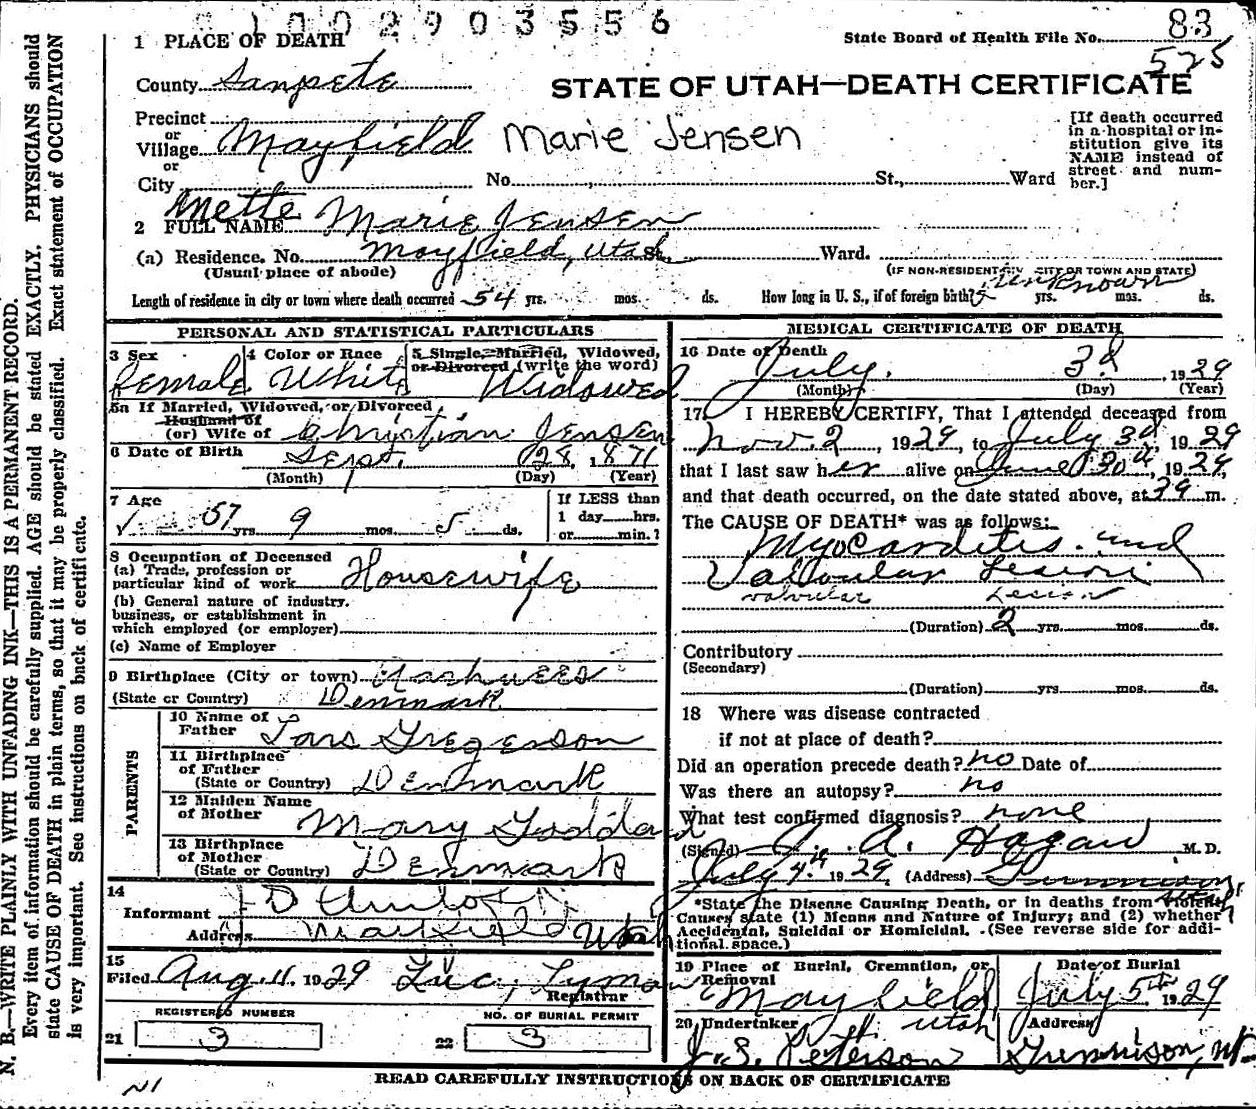 1002903556
State Board of Health File No. 83
525
1 PLACE OF DEATH
County Sanpete
STATE OF UTAH—DEATH CERTIFICATE
Precinct
or
Village Mayfield Marie Jensen
or
City No. , St., Ward
[If death occurred
in a hospital or in-
stitution give its
NAME instead of
street and num-
ber.]
2 FULL NAME Mette Marie Jensen
(a) Residence. No. Mayfield, Utah St. Ward.
(Usual place of abode)
(IF NON-RESIDENT GIV CITY OR TOWN AND STATE)
Length of residence in city or town where death occurred 54 yrs. mos. ds. How long in U. S., if of foreign birth? Unknown yrs. mos. ds.
PERSONAL AND STATISTICAL PARTICULARS
3 Sex
Female
4 Color or Race
White
5 Single, Married, Widowed,
or Divorced (write the word)
Widowed
5a If Married, Widowed, or Divorced
Husband of
(or) Wife of Christian Jensen
6 Date of Birth Sept. 28, 1871
(Month) (Day) (Year)
7 Age
57 yrs 9 mos. 5 ds.
If LESS than
1 day hrs.
or min.?
8 Occupation of Deceased
(a) Trade, profession or
particular kind of work Housewife
(b) General nature of industry.
business, or establishment in
which employed (or employer)
(c) Name of Employer
9 Birthplace (City or town)
(State or Country) Denmark
PARENTS
10 Name of
Father Lars Gregerson
11 Birthplace
of Father
(State or Country) Denmark
12 Maiden Name
of Mother Mary Goddard
13 Birthplace
of Mother
(State or Country) Denmark
14
Informant
Address Mayfield Utah
15
Filed Aug. 11. 1929 Luc, Lyman
Registrar
REGISTERED NUMBER
21 3
NO. OF BURIAL PERMIT
22 3
MEDICAL CERTIFICATE OF DEATH
16 Date of Death
July. 3d , 1929
(Month) (Day) (Year)
17. I HEREBY CERTIFY, That I attended deceased from
Nov. 2 , 1929, to July 3d, 1929
that I last saw her alive on June 30th, 1929,
and that death occurred, on the date stated above, at m.
The CAUSE OF DEATH* was as follows:
Myocarditis. and
Valvular Lesion
valvular Lesion
(Duration) 2 yrs. mos. ds.
Contributory
(Secondary)
(Duration) yrs. mos. ds.
18 Where was disease contracted
if not at place of death?
Did an operation precede death? no Date of
Was there an autopsy? no
What test confirmed diagnosis? none
(Signed) A. Hagan M. D.
July 4th 1929 (Address) Gunnison,
*State the Disease Causing Death, or in deaths from Violent
Causes state (1) Means and Nature of Injury; and (2) whether
Accidental, Suicidal or Homicidal. (See reverse side for addi-
tional space.)
19 Place of Burial, Cremation, or
Removal
Mayfield,
Utah
Date of Burial
July 5th 1929
20 Undertaker
J. S. Peterson
Address
Gunnison, Ut
READ CAREFULLY INSTRUCTIONS ON BACK OF CERTIFICATE
N. B.—WRITE PLAINLY WITH UNFADING INK—THIS IS A PERMANENT RECORD.
Every item of information should be carefully supplied. AGE should be stated EXACTLY. PHYSICIANS should
state CAUSE OF DEATH in plain terms, so that it may be properly classified. Exact statement of OCCUPATION
is very important. See instructions on back of certificate.